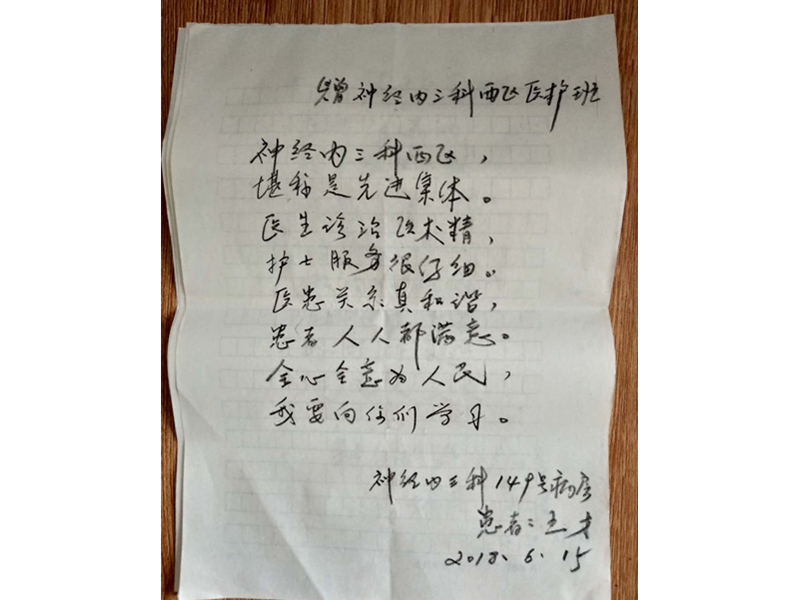 赠神经内三科西区医护班
神经内三科西区，
堪称是先进集体。
医生诊治医术精，
护士服务很仔细。
医患关系真和谐，
患者人人都满意。
全心全意为人民，
我要向你们学习。
神经内三科149号病房
患者：王才
2018.6.15